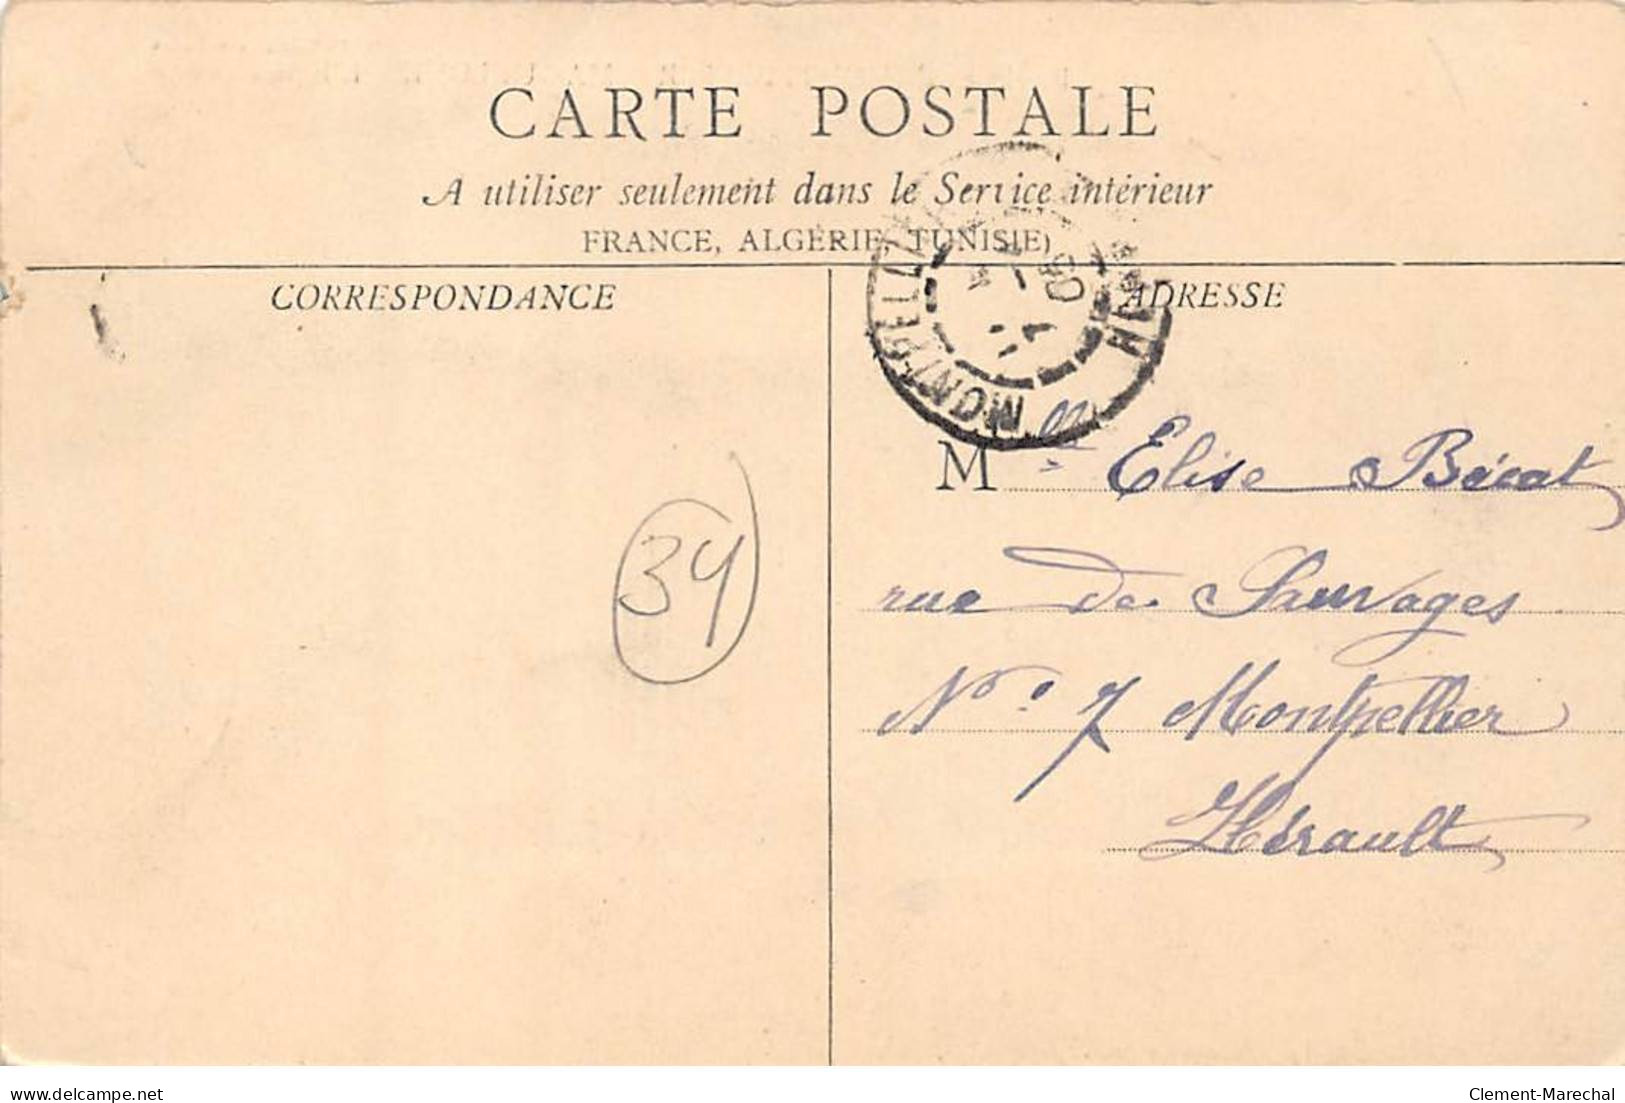 CARTE POSTALE
A utiliser seulement dans le Service intérieur
FRANCE, ALGÉRIE, TUNISIE)
CORRESPONDANCE
ADRESSE
MONTPELLIER
M lle Elise Bécat
rue de Sauvages
No. 7 Montpellier
Hérault
34
www.delcampe.net
Clement-Marechal